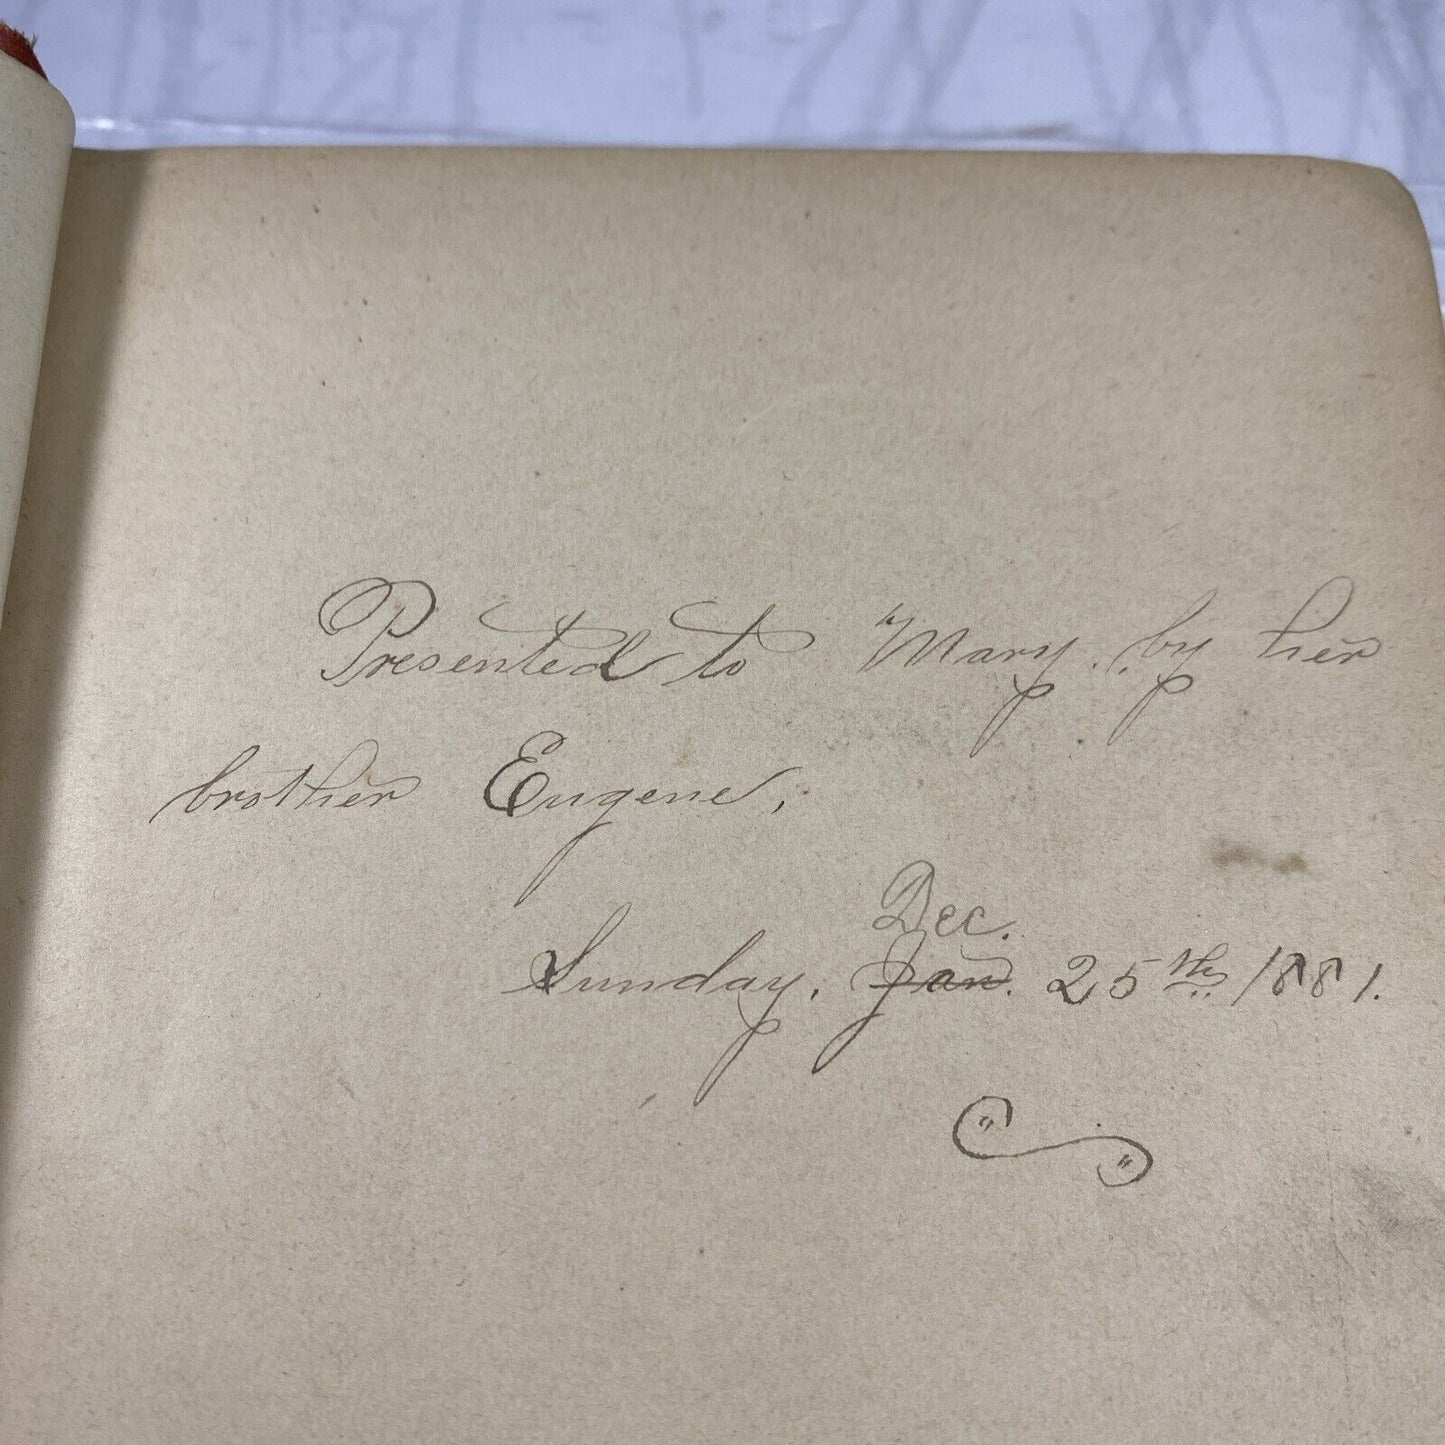 Presented to Mary, by her
brother Eugene,
Dec.
Sunday, Jan. 25th, 1881.